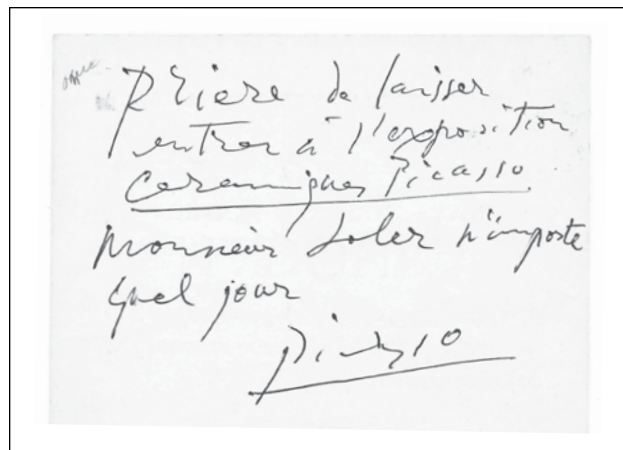 Priere de laisser
entrer à l'exposition
ceramiques Picasso
Monsieur Soler n'importe
quel jour
Picasso